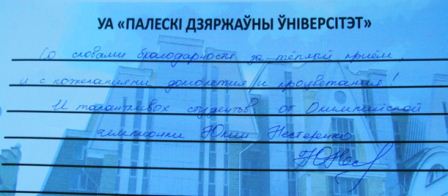 УА «ПАЛЕСКІ ДЗЯРЖАЎНЫ ЎНІВЕРСІТЭТ»
Со словами благодарности за тёплый приём,
и с пожеланиями долголетия и процветания!
И талантливых студентов! от Олимпийской
чемпионки Юлии Нестеренко